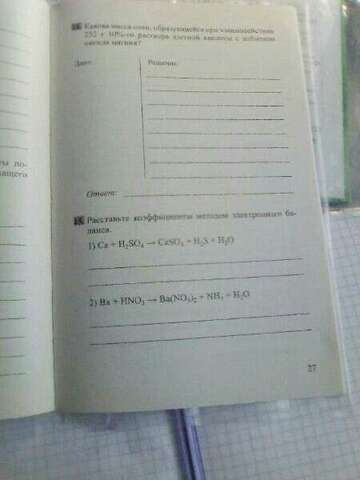 Какова масса соли, образующейся при взаимодействии
252 г 10%-го раствора азотной кислоты с избытком
оксида магния?
Дано:
Решение:
Ответ:
Расставьте коэффициенты методом электронного ба-
ланса.
1) Ca + H₂SO₄ → CaSO₄ + H₂S + H₂O
2) Ba + HNO₃ → Ba(NO₃)₂ + NH₃ + H₂O
27